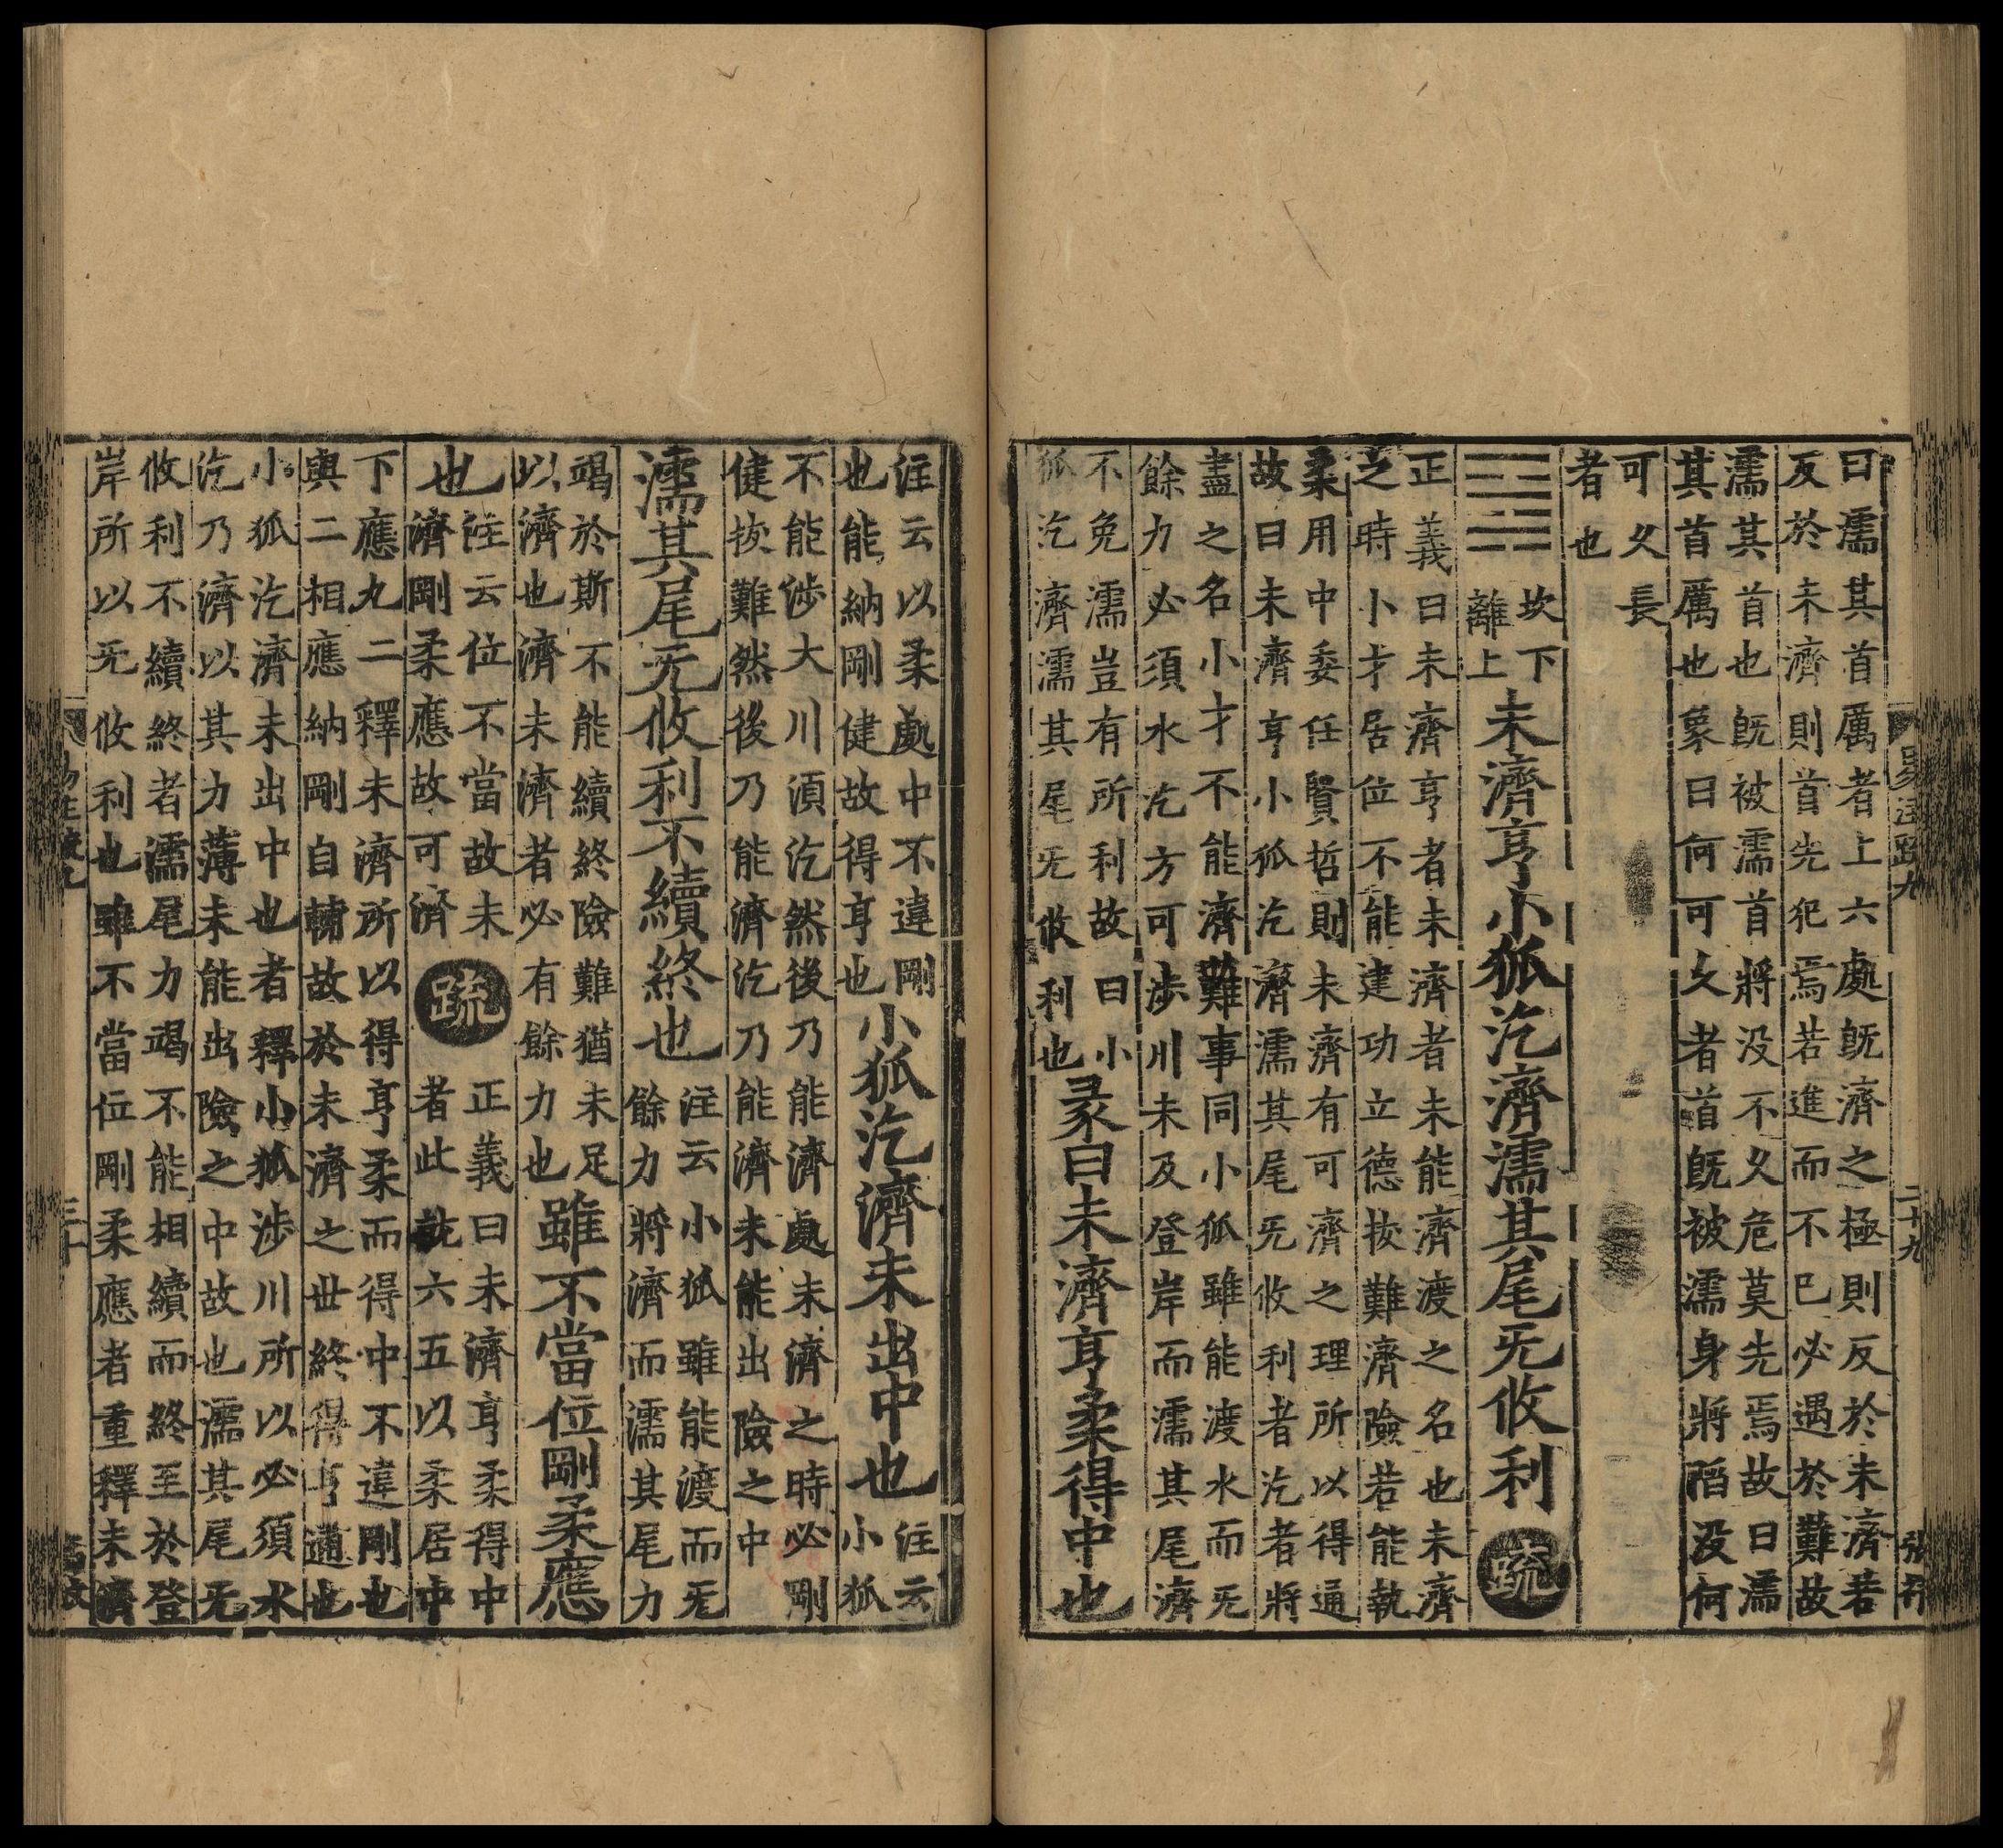 易注䟽九
二十九
曰濡其首厲者上六處旣濟之極則反於未濟若
反於未濟則首先犯焉若進而不已必遇於難故
濡其首也旣被濡首將没不久危莫先焉故曰濡
其首厲也象曰何可久者首旣被濡身將䧟没何
可久長
者也
坎下
離上
未濟亨小狐汔濟濡其尾无攸利䟽
正義曰未濟亨者未濟者未能濟渡之名也未濟
之時小才居位不能建功立德拔難濟險若能執
柔用中委任賢哲則未濟有可濟之理所以得通
故曰未濟亨小狐汔濟濡其尾无攸利者汔者將
盡之名小才不能濟難事同小狐雖能渡水而无
餘力必須水汔方可涉川未及登岸而濡其尾濟
不免濡豈有所利故曰小
狐汔濟濡其尾无攸利也
彖曰未濟亨柔得中也
注云以柔處中不違剛
也能納剛健故得亨也
小狐汔濟未出中也
注云
小狐
不能涉大川湏汔然後乃能濟處未濟之時必剛
健拔難然後乃能濟汔乃能濟未能出險之中
濡其尾无攸利不續終也
注云小狐雖能渡而无
餘力將濟而濡其尾力
竭於斯不能續終險難猶未足
以濟也濟未濟者必有餘力也
雖不當位剛柔應
也
注云位不當故未
濟剛柔應故可濟
䟽
正義曰未濟亨柔得中
者此就六五以柔居中
下應九二釋未濟所以得亨柔而得中不違剛也
與二相應納剛自輔故於未濟之世終得亨通也
小狐汔濟未出中也者釋小狐涉川所以必須水
汔乃濟以其力薄未能出險之中故也濡其尾无
攸利不續終者濡尾力竭不能相續而終至於登
岸所以无攸利也雖不當位剛柔應者重釋未濟
三十